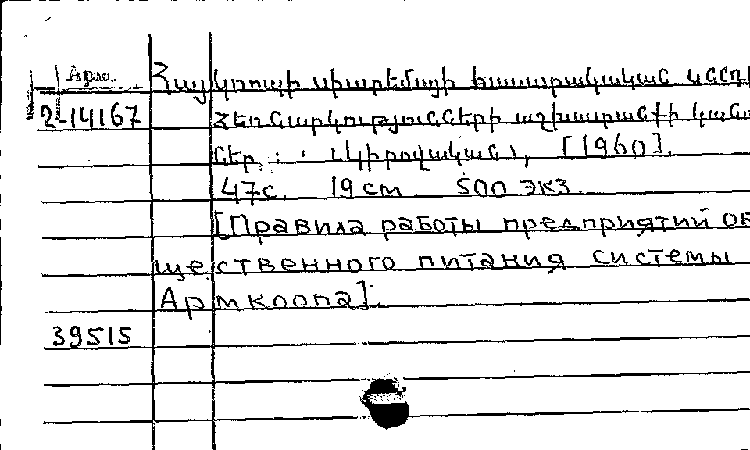 Арм.
Հայկոոպի սիստեմայի հասարակական սննդի
2-14167
ձեռնարկությունների աշխատանքի կանոն
ներ. Կիրովական, [1960].
47с. 19см 500 экз.
[Правила работы предприятий об
щественного питания системы
Армкоопа].
39515